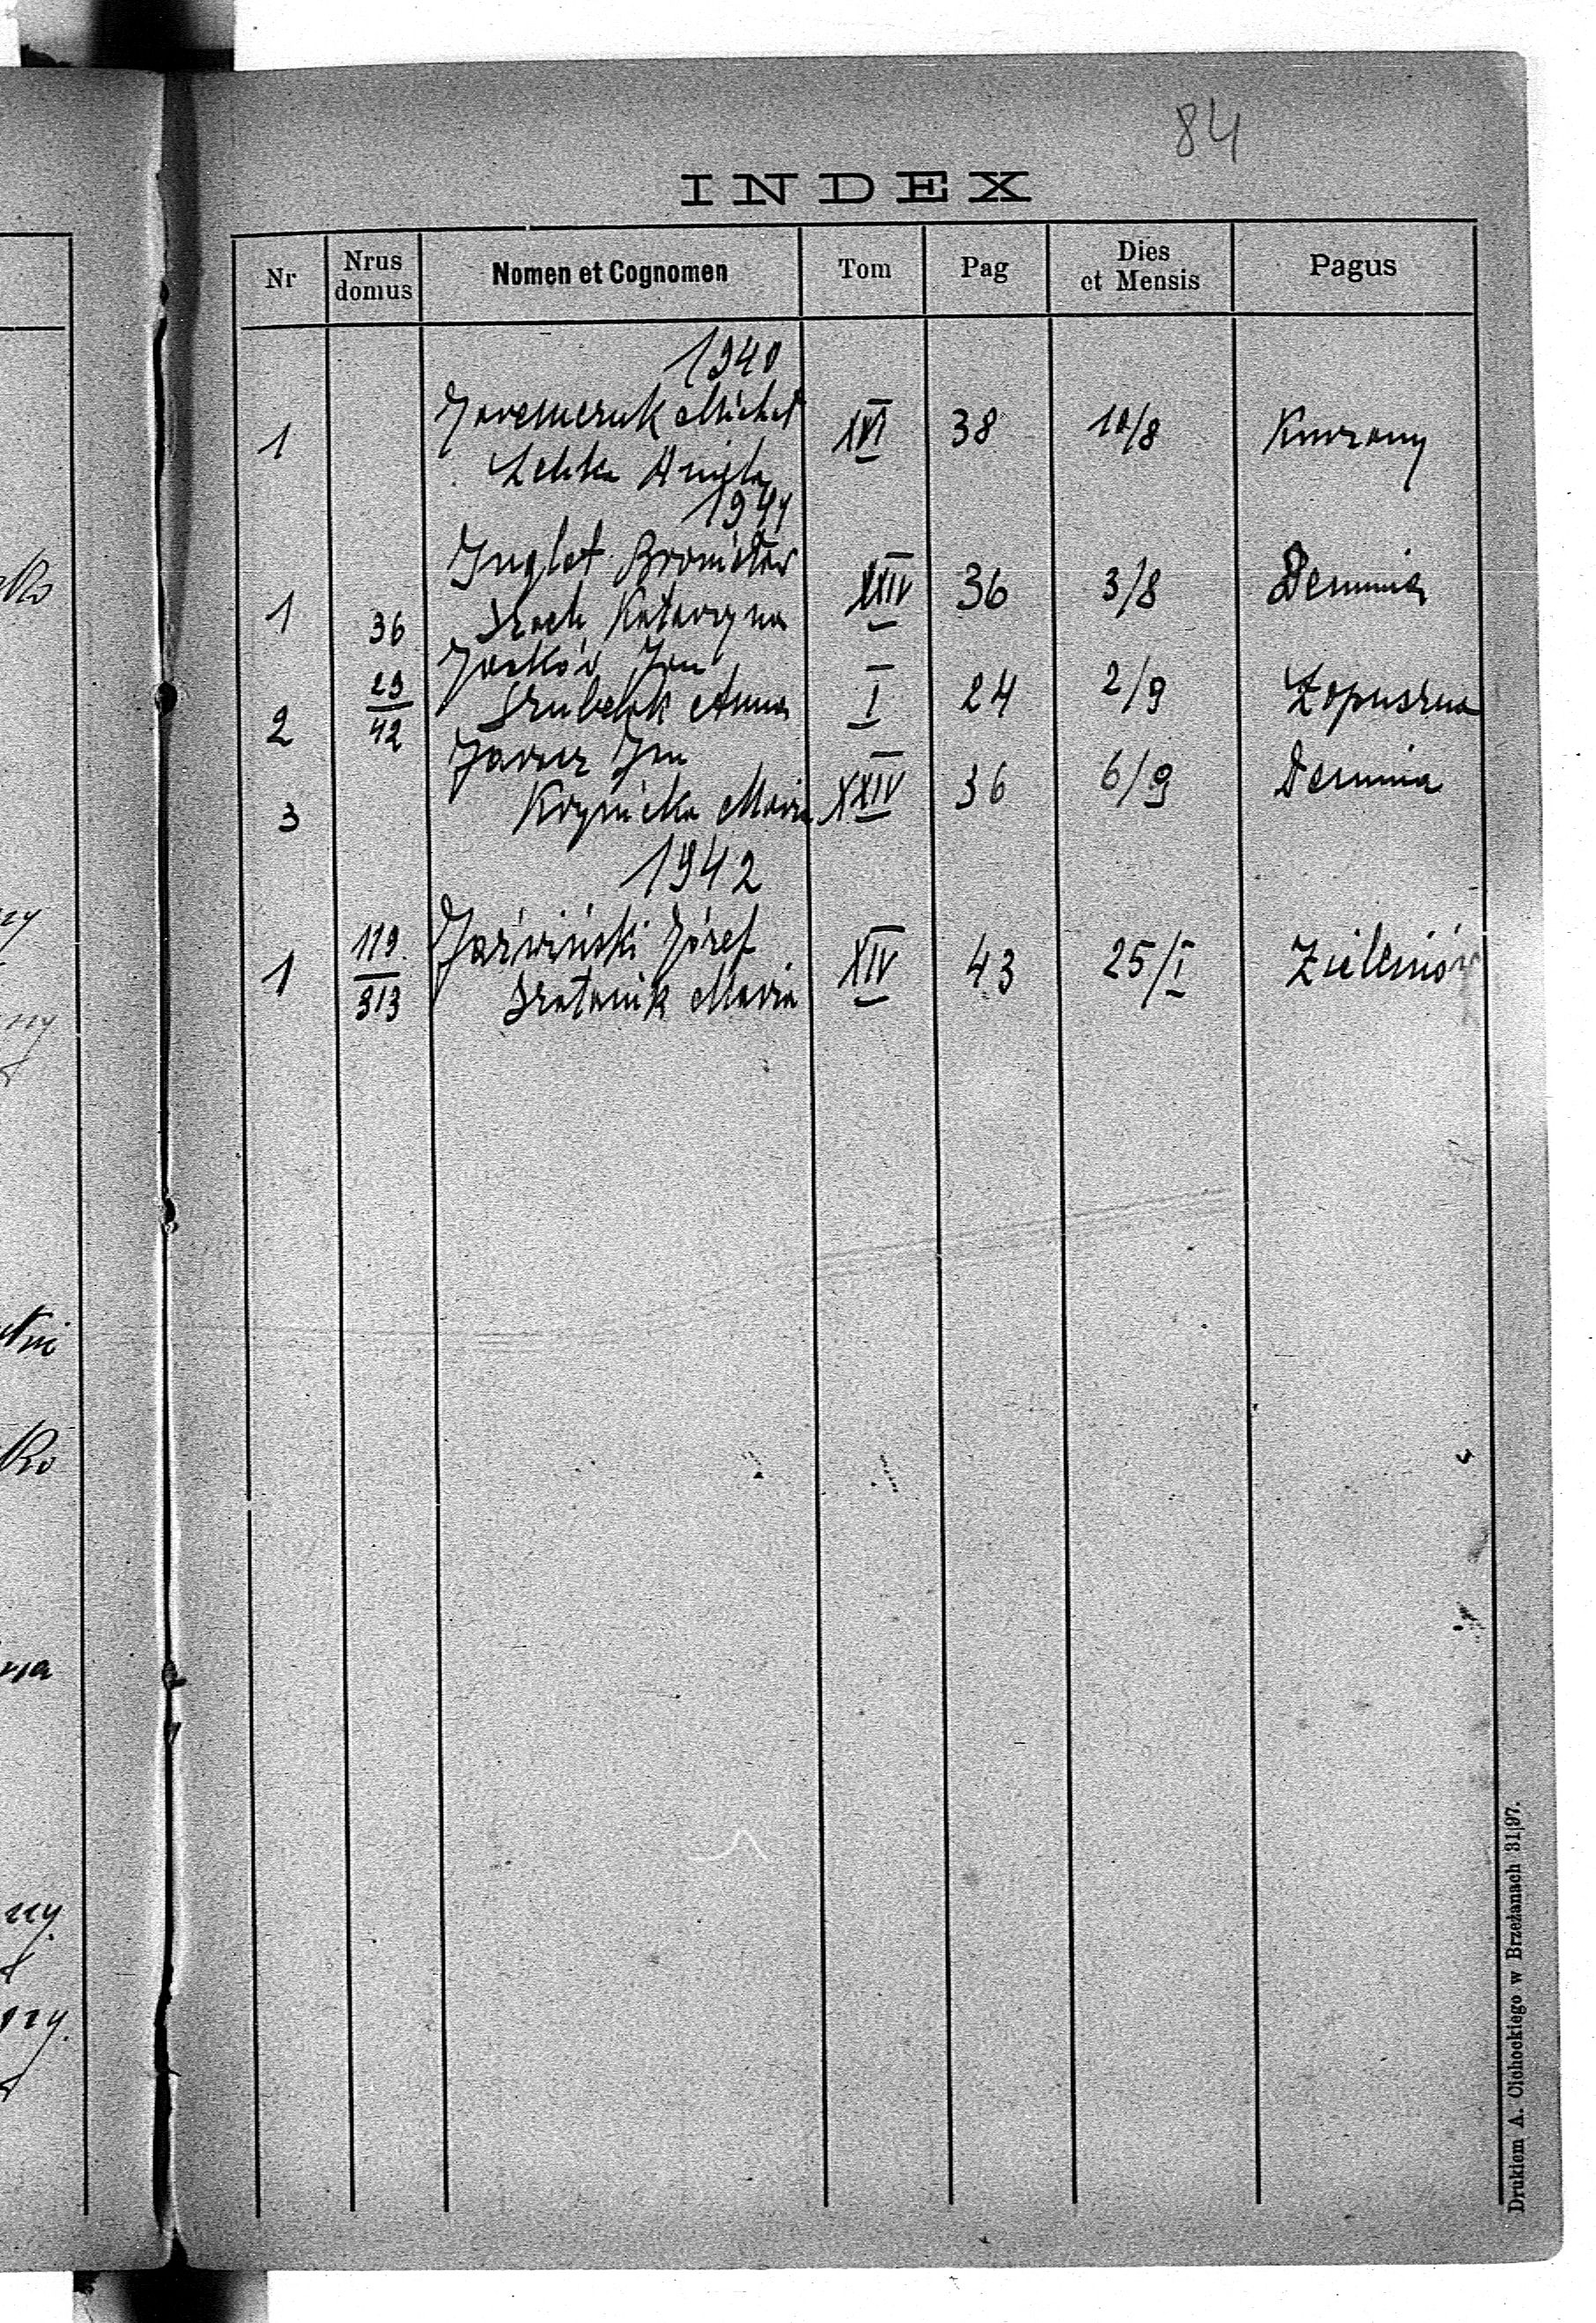 84
INDEX
Nr Nrus domus Nomen et Cognomen Tom Pag Dies et Mensis Pagus
1940
1 Jaremczuk Michał XVI 38 10/8 Kurzany
Lehka Aniela
1941
Inglot Bronisław
1 36 Szoch Katarzyna XXIV 36 3/8 Demnia
Jaśków Jan
2 29/42 Szubelak Anna I 24 2/9 Łopuszna
Jarosz Jan
3 Krynicka Maria XXIV 36 6/9 Demnia
1942
1 119/313 Jaźwiński Józef XIV 43 25/I Zieleniów
Szatanik Maria
Drukiem A. Cichockiego w Brzeżanach 31|97.